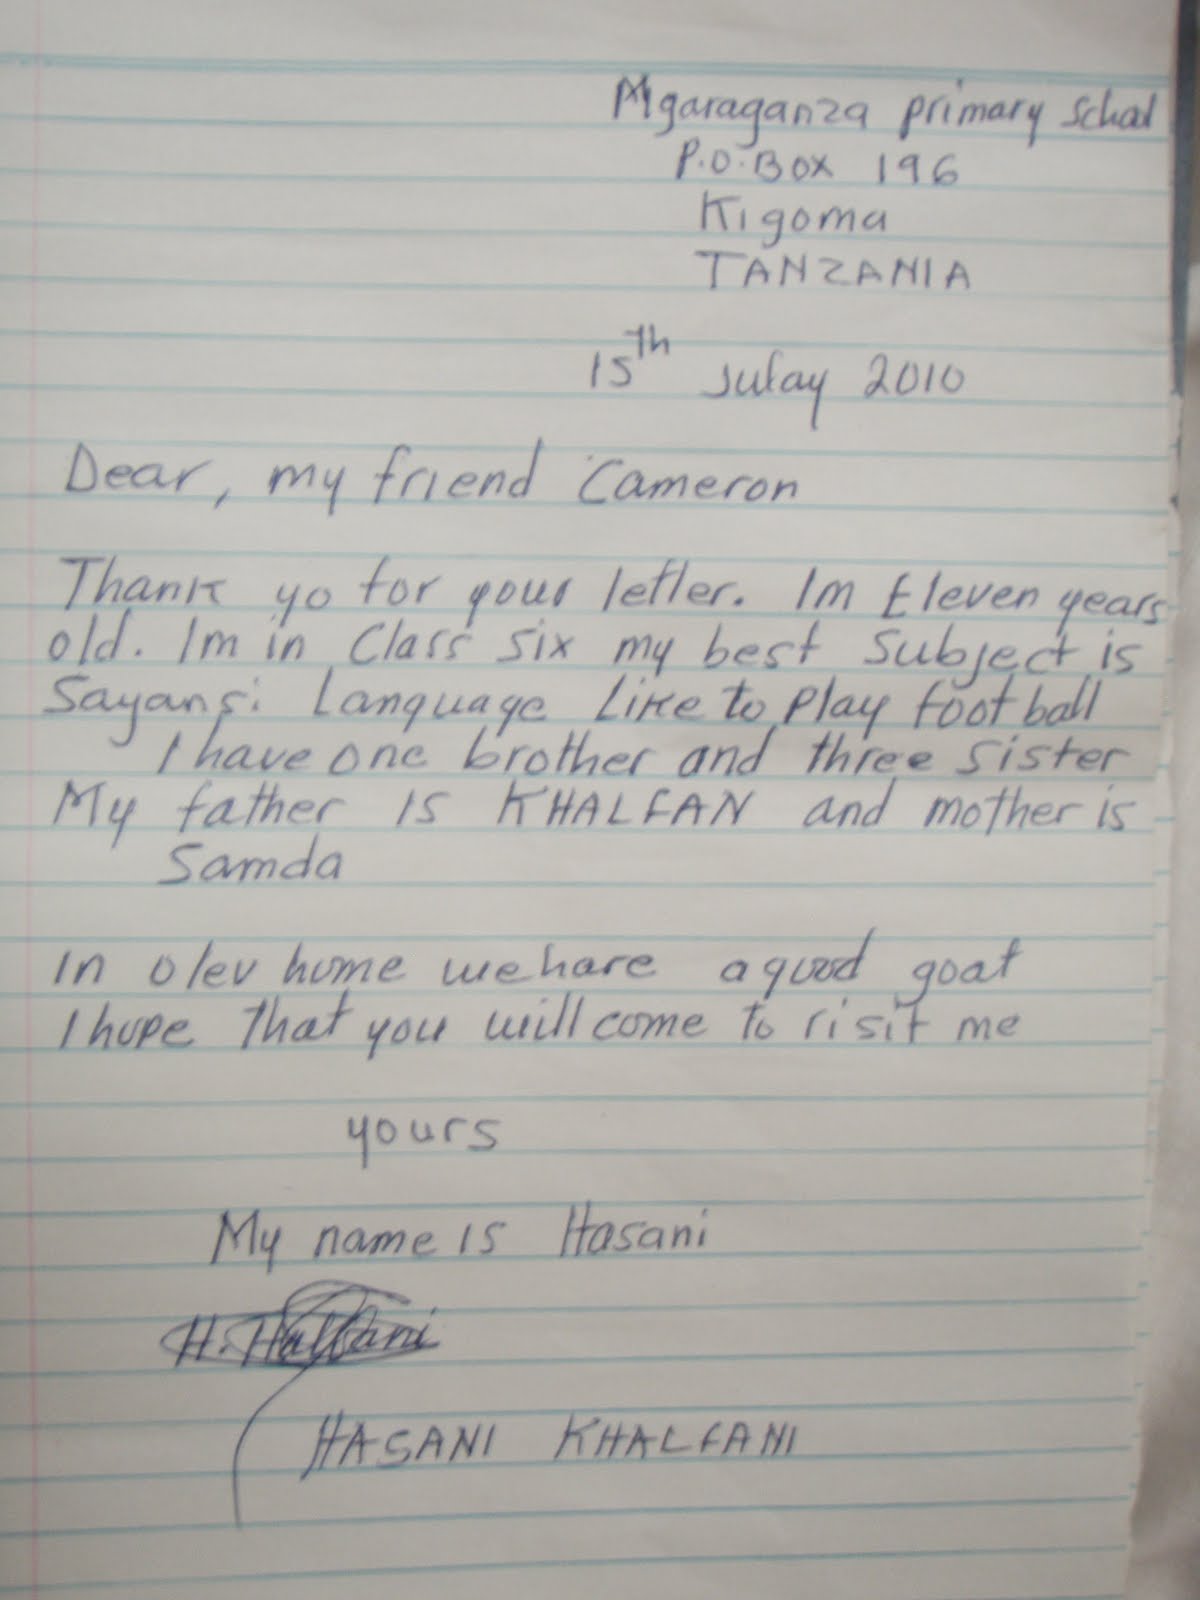 Mgaraganza primary School
P.O.BOX 196
Kigoma
TANZANIA
15th Julay 2010
Dear, my friend Cameron
Thank yo for your letter. Im Eleven years
old. Im in Class six my best Subject is
Sayansi Language Like to Play football
I have one brother and three sister
My father is KHALFAN and mother is
Samda
In olev home we have a good goat
I hope That you will come to visit me
yours
My name is Hasani
HASANI KHALFANI